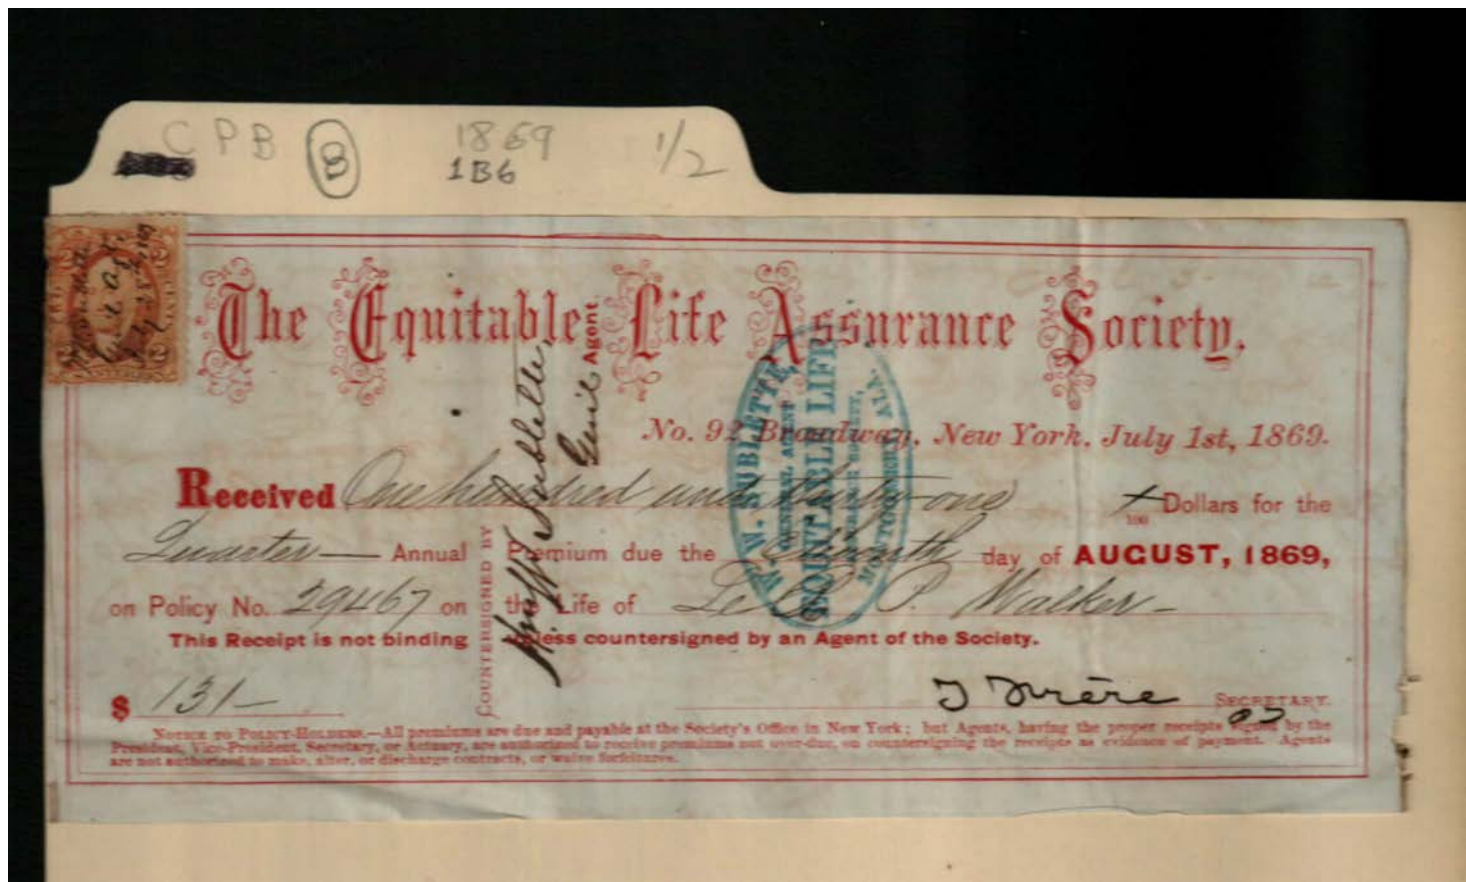 C P B B 1869 1/2
1B6
The Equitable Life Assurance Society,
No. 92 Broadway, New York, July 1st, 1869.
Received One hundred and thirty-one Dollars for the
100
Quarter — Annual Premium due the day of AUGUST, 1869,
on Policy No. 29467 on the Life of P. Walker -
This Receipt is not binding unless countersigned by an Agent of the Society.
$ 131-
SECRETARY.
NOTICE TO POLICY-HOLDERS.—All premiums are due and payable at the Society's Office in New York; but Agents, having the proper receipts signed by the
President, Vice-President, Secretary, or Actuary, are authorized to receive premiums not over-due, on countersigning the receipts as evidence of payment. Agents
are not authorized to make, alter, or discharge contracts, or waive forfeitures.
COUNTERSIGNED BY
Sublette,
Genl Agent.
W. W. SUBLETTE,
GENERAL AGENT
EQUITABLE LIFE
ASSURANCE SOCIETY,
MONTGOMERY, ALA.
2 2
2 2